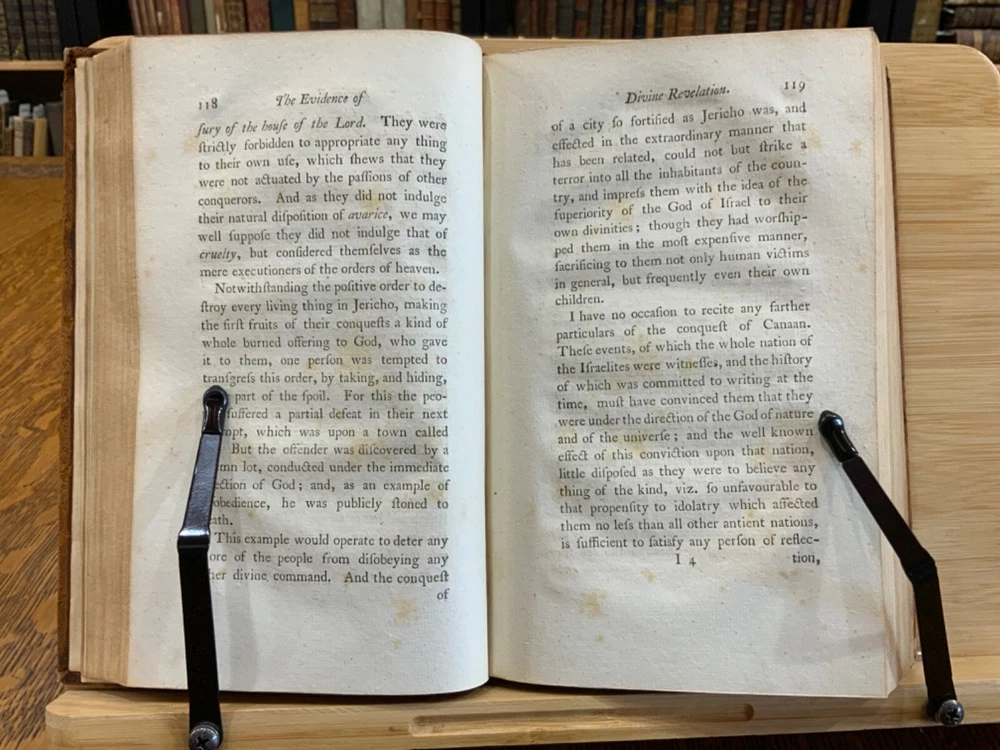 118 The Evidence of
ſury of the houſe of the Lord. They were
ſtrictly forbidden to appropriate any thing
to their own uſe, which ſhews that they
were not actuated by the paſſions of other
conquerors. And as they did not indulge
their natural diſpoſition of avarice, we may
well ſuppoſe they did not indulge that of
cruelty, but conſidered themſelves as the
mere executioners of the orders of heaven.
Notwithſtanding the poſitive order to de-
ſtroy every living thing in Jericho, making
the firſt fruits of their conqueſts a kind of
whole burned offering to God, who gave
it to them, one perſon was tempted to
tranſgreſs this order, by taking, and hiding,
part of the ſpoil. For this the peo-
ſuffered a partial defeat in their next
mpt, which was upon a town called
But the offender was diſcovered by a
mn lot, conducted under the immediate
ection of God; and, as an example of
obedience, he was publicly ſtoned to
ath.
This example would operate to deter any
ore of the people from diſobeying any
her divine command. And the conqueſt
of
Divine Revelation. 119
of a city ſo fortified as Jericho was, and
effected in the extraordinary manner that
has been related, could not but ſtrike a
terror into all the inhabitants of the coun-
try, and impreſs them with the idea of the
ſuperiority of the God of Iſrael to their
own divinities; though they had worſhip-
ped them in the moſt expenſive manner,
ſacrificing to them not only human victims
in general, but frequently even their own
children.
I have no occaſion to recite any farther
particulars of the conqueſt of Canaan.
Theſe events, of which the whole nation of
the Iſraelites were witneſſes, and the hiſtory
of which was committed to writing at the
time, muſt have convinced them that they
were under the direction of the God of nature
and of the univerſe; and the well known
effect of this conviction upon that nation,
little diſpoſed as they were to believe any
thing of the kind, viz. ſo unfavourable to
that propenſity to idolatry which affected
them no leſs than all other antient nations,
is ſufficient to ſatisfy any perſon of reflec-
I 4 tion,